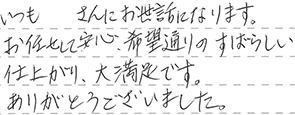 いつも　　さんにお世話になります。
お任せして安心、希望通りの すばらしい
仕上がり、大満足です。
ありがとうございました。